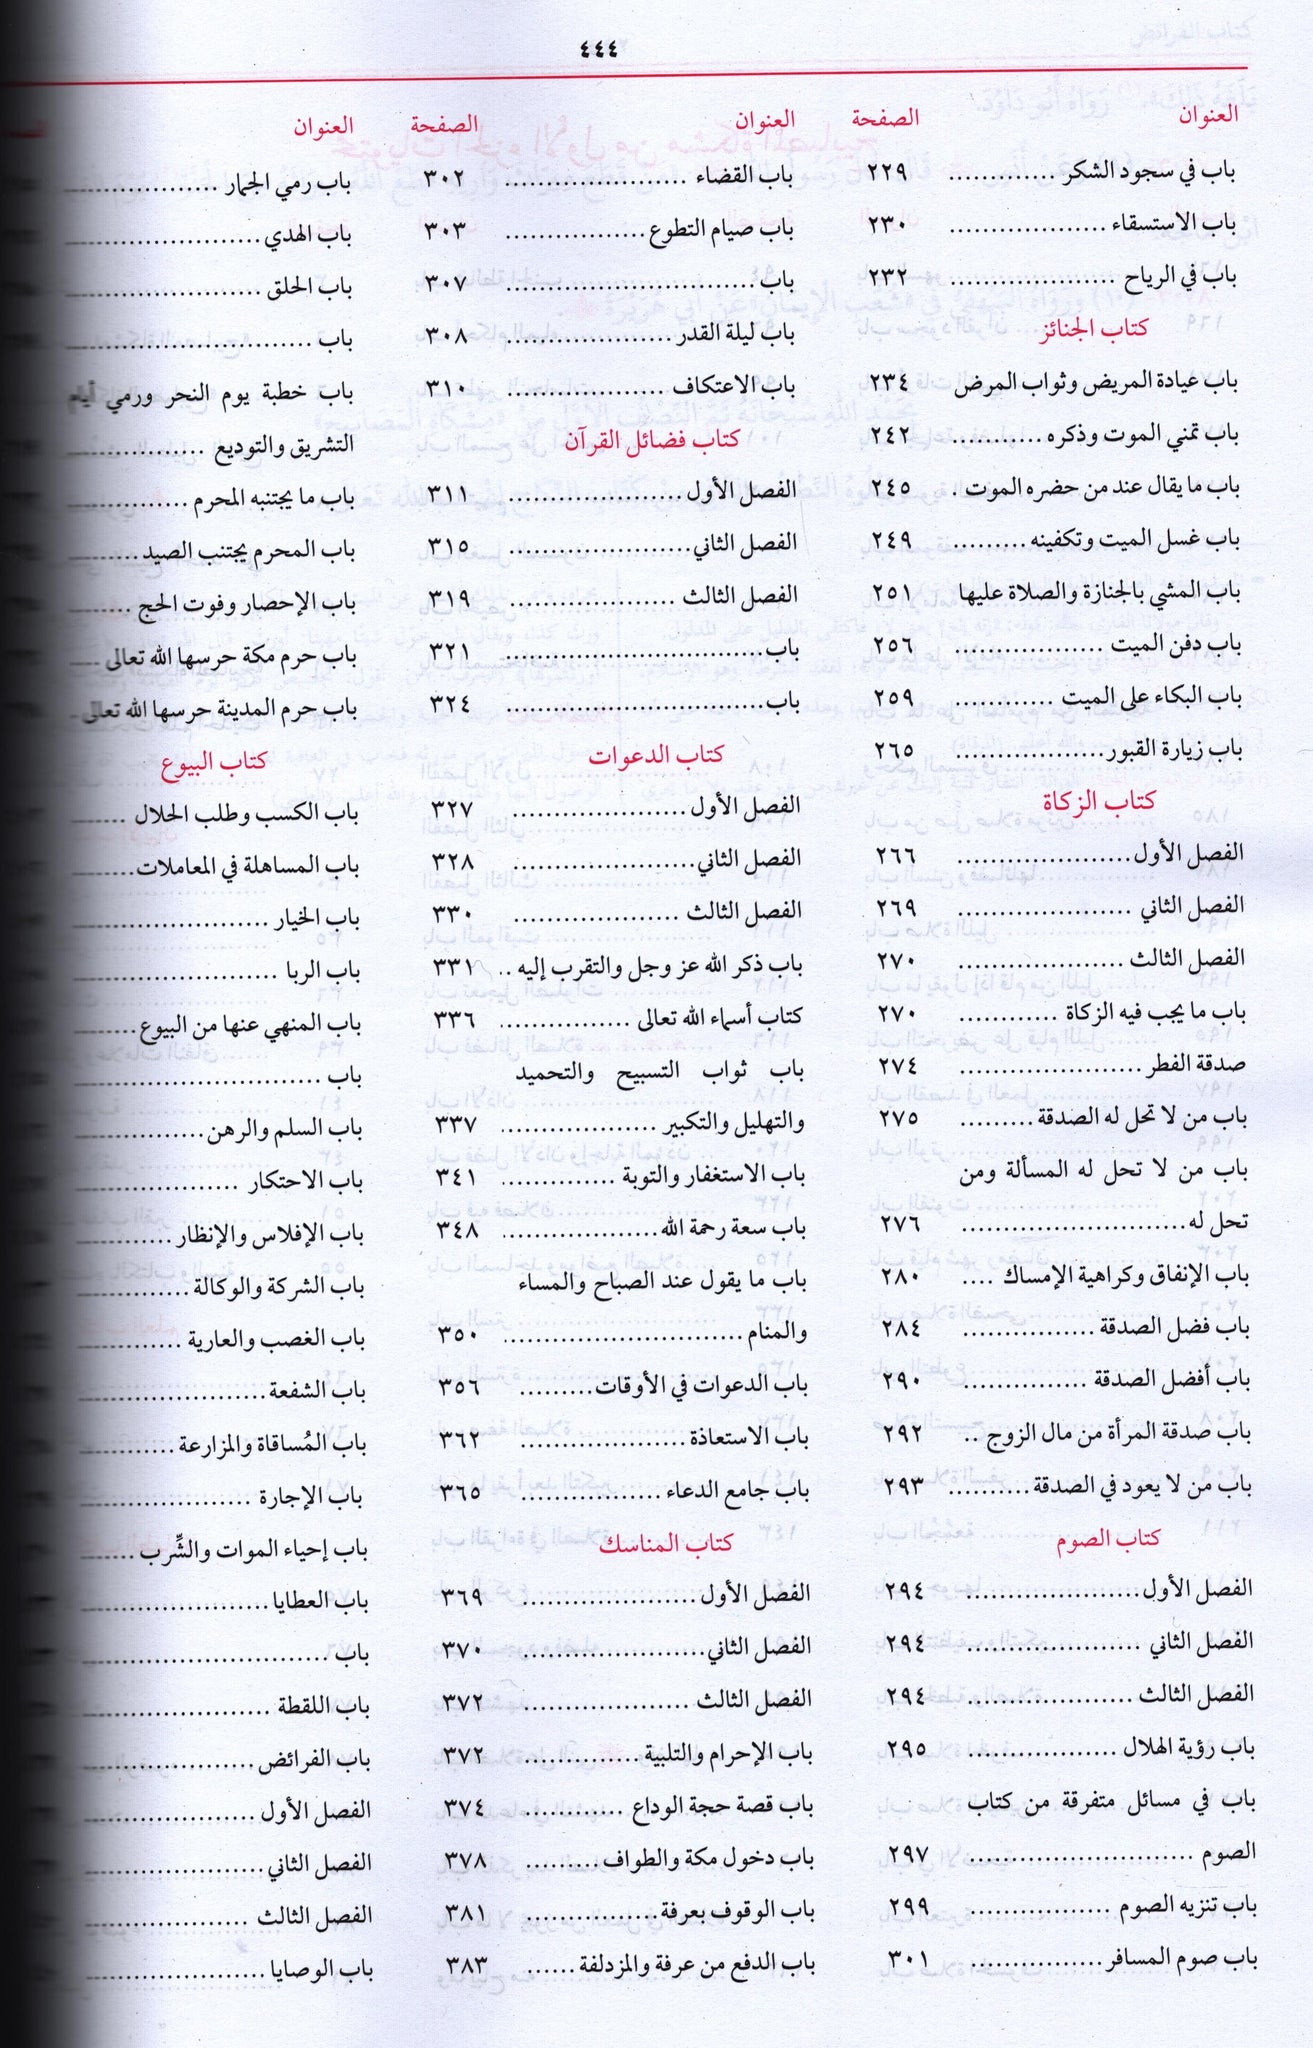 ٤٤٤
العنوان الصفحة
باب في سجود الشكر ............. ٢٢٩
باب الاستسقاء ................... ٢٣٠
باب في الرياح ..................... ٢٣٢
كتاب الجنائز
باب عيادة المريض وثواب المرض ٢٣٤
باب تمني الموت وذكره ........... ٢٤٢
باب ما يقال عند من حضره الموت . ٢٤٥
باب غسل الميت وتكفينه ......... ٢٤٩
باب المشي بالجنازة والصلاة عليها ٢٥١
باب دفن الميت .................. ٢٥٦
باب البكاء على الميت ............ ٢٥٩
باب زيارة القبور .................. ٢٦٥
كتاب الزكاة
الفصل الأول ..................... ٢٦٦
الفصل الثاني ..................... ٢٦٩
الفصل الثالث .................... ٢٧٠
باب ما يجب فيه الزكاة ............ ٢٧٠
صدقة الفطر ...................... ٢٧٤
باب من لا تحل له الصدقة ......... ٢٧٥
باب من لا تحل له المسألة ومن
تحل له ........................... ٢٧٦
باب الإنفاق وكراهية الإمساك .... ٢٨٠
باب فضل الصدقة ................ ٢٨٤
باب أفضل الصدقة ............... ٢٩٠
باب صدقة المرأة من مال الزوج .. ٢٩٢
باب من لا يعود في الصدقة .......... ٢٩٣
كتاب الصوم
الفصل الأول ..................... ٢٩٤
الفصل الثاني ..................... ٢٩٤
الفصل الثالث .................... ٢٩٤
باب رؤية الهلال .................. ٢٩٥
باب في مسائل متفرقة من كتاب
الصوم ........................... ٢٩٧
باب تنزيه الصوم ................. ٢٩٩
باب صوم المسافر ................ ٣٠١
العنوان الصفحة
باب القضاء ...................... ٣٠٢
باب صيام التطوع ................. ٣٠٣
باب .............................. ٣٠٧
باب ليلة القدر .................... ٣٠٨
باب الاعتكاف ................... ٣١٠
كتاب فضائل القرآن
الفصل الأول ..................... ٣١١
الفصل الثاني ...................... ٣١٥
الفصل الثالث .................... ٣١٩
باب ............................... ٣٢١
باب ............................... ٣٢٤
كتاب الدعوات
الفصل الأول ..................... ٣٢٧
الفصل الثاني ...................... ٣٢٨
الفصل الثالث .................... ٣٣٠
باب ذكر الله عز وجل والتقرب إليه .. ٣٣١
كتاب أسماء الله تعالى ................ ٣٣٦
باب ثواب التسبيح والتحميد
والتهليل والتكبير ................... ٣٣٧
باب الاستغفار والتوبة .............. ٣٤١
باب سعة رحمة الله ................... ٣٤٨
باب ما يقول عند الصباح والمساء
والمنام ............................. ٣٥٠
باب الدعوات في الأوقات ......... ٣٥٦
باب الاستعاذة .................... ٣٦٢
باب جامع الدعاء ................. ٣٦٥
كتاب المناسك
الفصل الأول ..................... ٣٦٩
الفصل الثاني ...................... ٣٧٠
الفصل الثالث .................... ٣٧٢
باب الإحرام والتلبية .............. ٣٧٢
باب قصة حجة الوداع ............ ٣٧٤
باب دخول مكة والطواف ......... ٣٧٨
باب الوقوف بعرفة ................ ٣٨١
باب الدفع من عرفة والمزدلفة ...... ٣٨٣
العنوان
باب رمي الجمار ...................
باب الهدي ........................
باب الحلق ........................
باب ..............................
باب خطبة يوم النحر ورمي أيام
التشريق والتوديع ................
باب ما يجتنبه المحرم ..............
باب المحرم يجتنب الصيد .........
باب الإحصار وفوت الحج ........
باب حرم مكة حرسها الله تعالى ....
باب حرم المدينة حرسها الله تعالى ..
كتاب البيوع
باب الكسب وطلب الحلال .......
باب المساهلة في المعاملات ........
باب الخيار ........................
باب الربا .........................
باب المنهي عنها من البيوع ........
باب ..............................
باب السلم والرهن ................
باب الاحتكار ....................
باب الإفلاس والإنظار ............
باب الشركة والوكالة ..............
باب الغصب والعارية .............
باب الشفعة .......................
باب المُساقاة والمزارعة ............
باب الإجارة ......................
باب إحياء الموات والشِّرب .......
باب العطايا .......................
باب ..............................
باب اللقطة .......................
باب الفرائض .....................
الفصل الأول .....................
الفصل الثاني ......................
الفصل الثالث ....................
باب الوصايا ......................